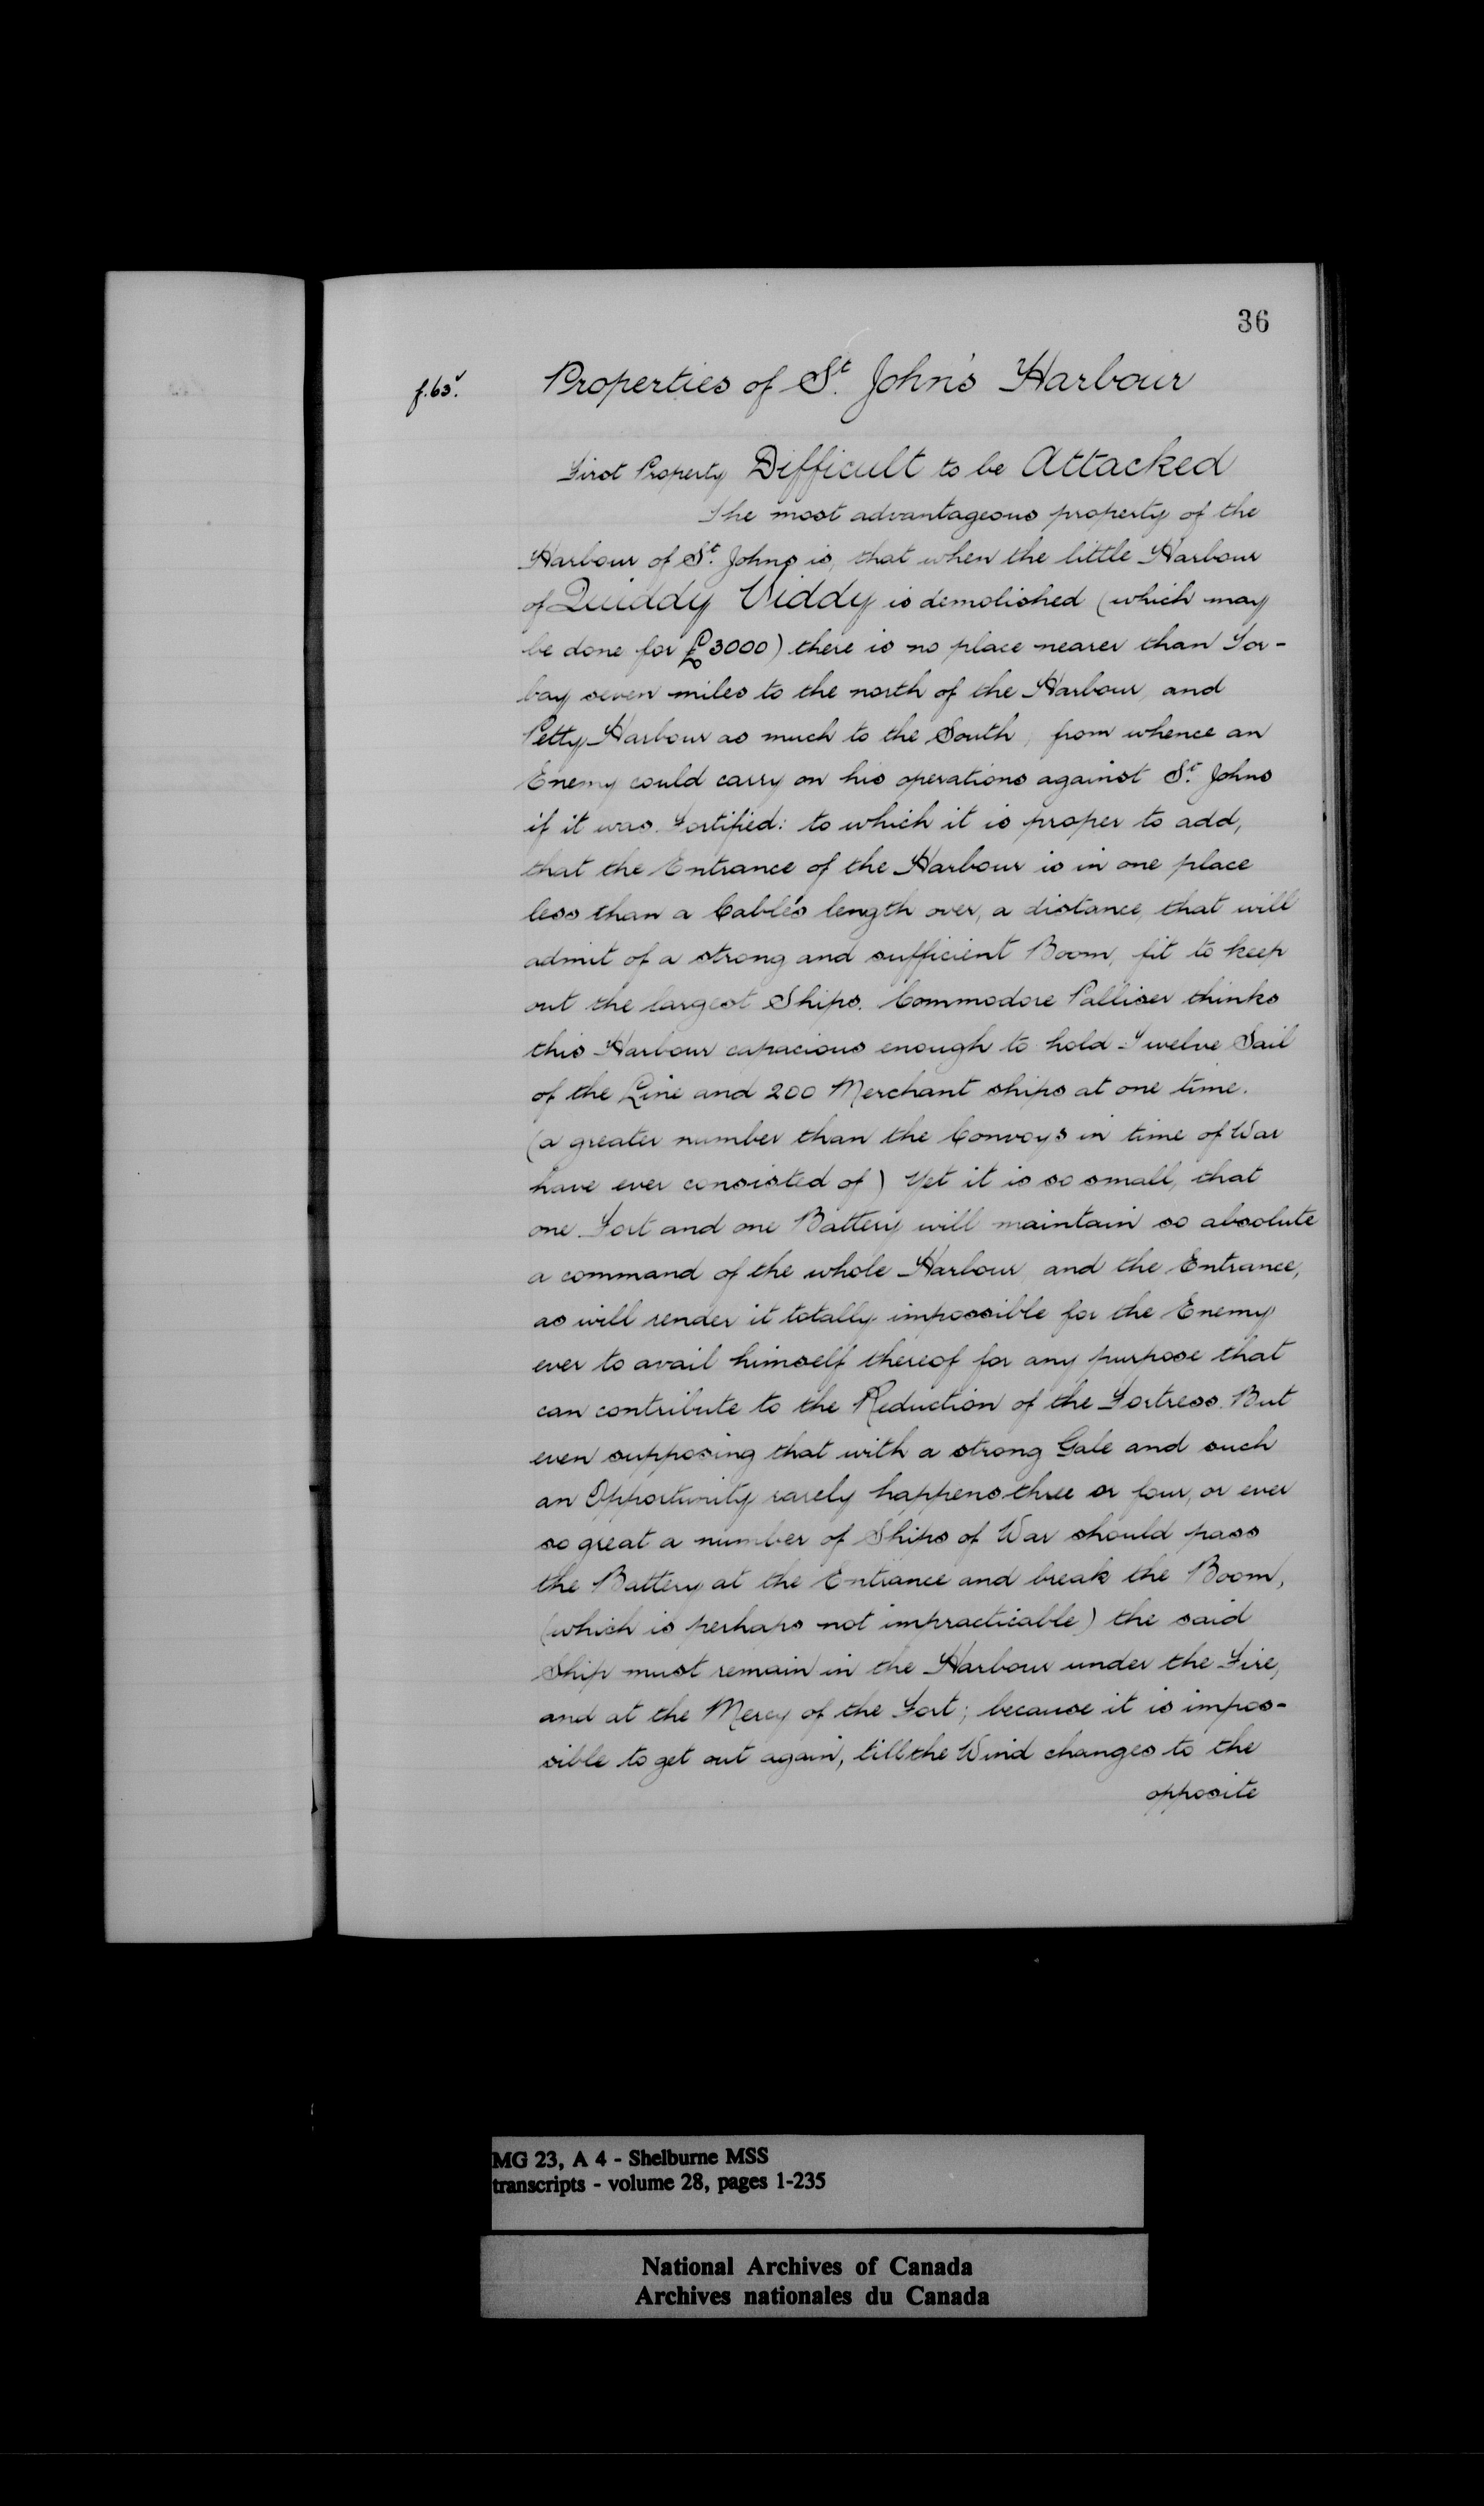 36
f.63v.
Properties of St. John's Harbour
First Property Difficult to be Attacked
The most advantageous property of the
Harbour of St. Johns is, that when the little Harbour
of Quiddy Viddy is demolished (which may
be done for £3000) there is no place nearer than Tor-
bay seven miles to the north of the Harbour, and
Petty Harbour as much to the South, from whence an
Enemy could carry on his operations against St. Johns
if it was Fortified: to which it is proper to add,
that the Entrance of the Harbour is in one place
less than a Cable's length over, a distance, that will
admit of a strong and sufficient Boom, fit to keep
out the largest Ships. Commodore Palliser thinks
this Harbour capacious enough to hold Twelve Sail
of the Line and 200 Merchant ships at one time.
(a greater number than the Convoys in time of War
have ever consisted of) Yet it is so small, that
one Fort and one Battery will maintain so absolute
a command of the whole Harbour, and the Entrance,
as will render it totally impossible for the Enemy
ever to avail himself thereof for any purpose that
can contribute to the Reduction of the Fortress. But
even supposing that with a strong Gale and such
an Opportunity rarely happens three or four, or ever
so great a number of Ships of War should pass
the Battery at the Entrance and break the Boom,
(which is perhaps not impracticable) the said
Ship must remain in the Harbour under the Fire,
and at the Mercy of the Fort; because it is impos-
sible to get out again, till the Wind changes to the
opposite
MG 23, A 4 - Shelburne MSS
transcripts - volume 28, pages 1-235
National Archives of Canada
Archives nationales du Canada